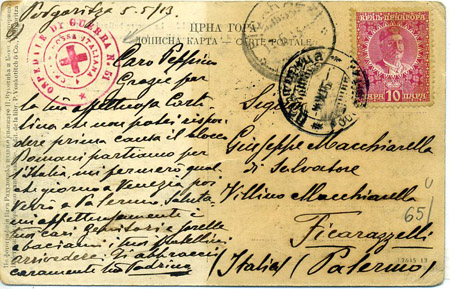 Podgoritza 5.5/13
ЦРНА ГОРА
ДОПИСНА КАРТА — CARTE POSTALE
OSPEDALE DI GUERRA N. 51
CROSSA ITALIANA
Caro Peppino
Grazie per
la tua affettuosa Carto
lina et non potei rispon
dere prima causa il blocco
Domani partiamo per
l'Italia, mi fermerò qual
che giorno a Venezia poi
verrò a Palermo. Saluta
mi affettuosamente i
tuoi cari Genitori e sorelle
e baciami i tuoi fratellini
arrivederci. Ti abbraccio
caramente tuo Padrino
Giuseppe Macchiarella
di Salvatore
Villino Macchiarella
Ficarazzelli
(Italia) (Palermo)
65/
ПАРА 10 ПАРА
7645 13